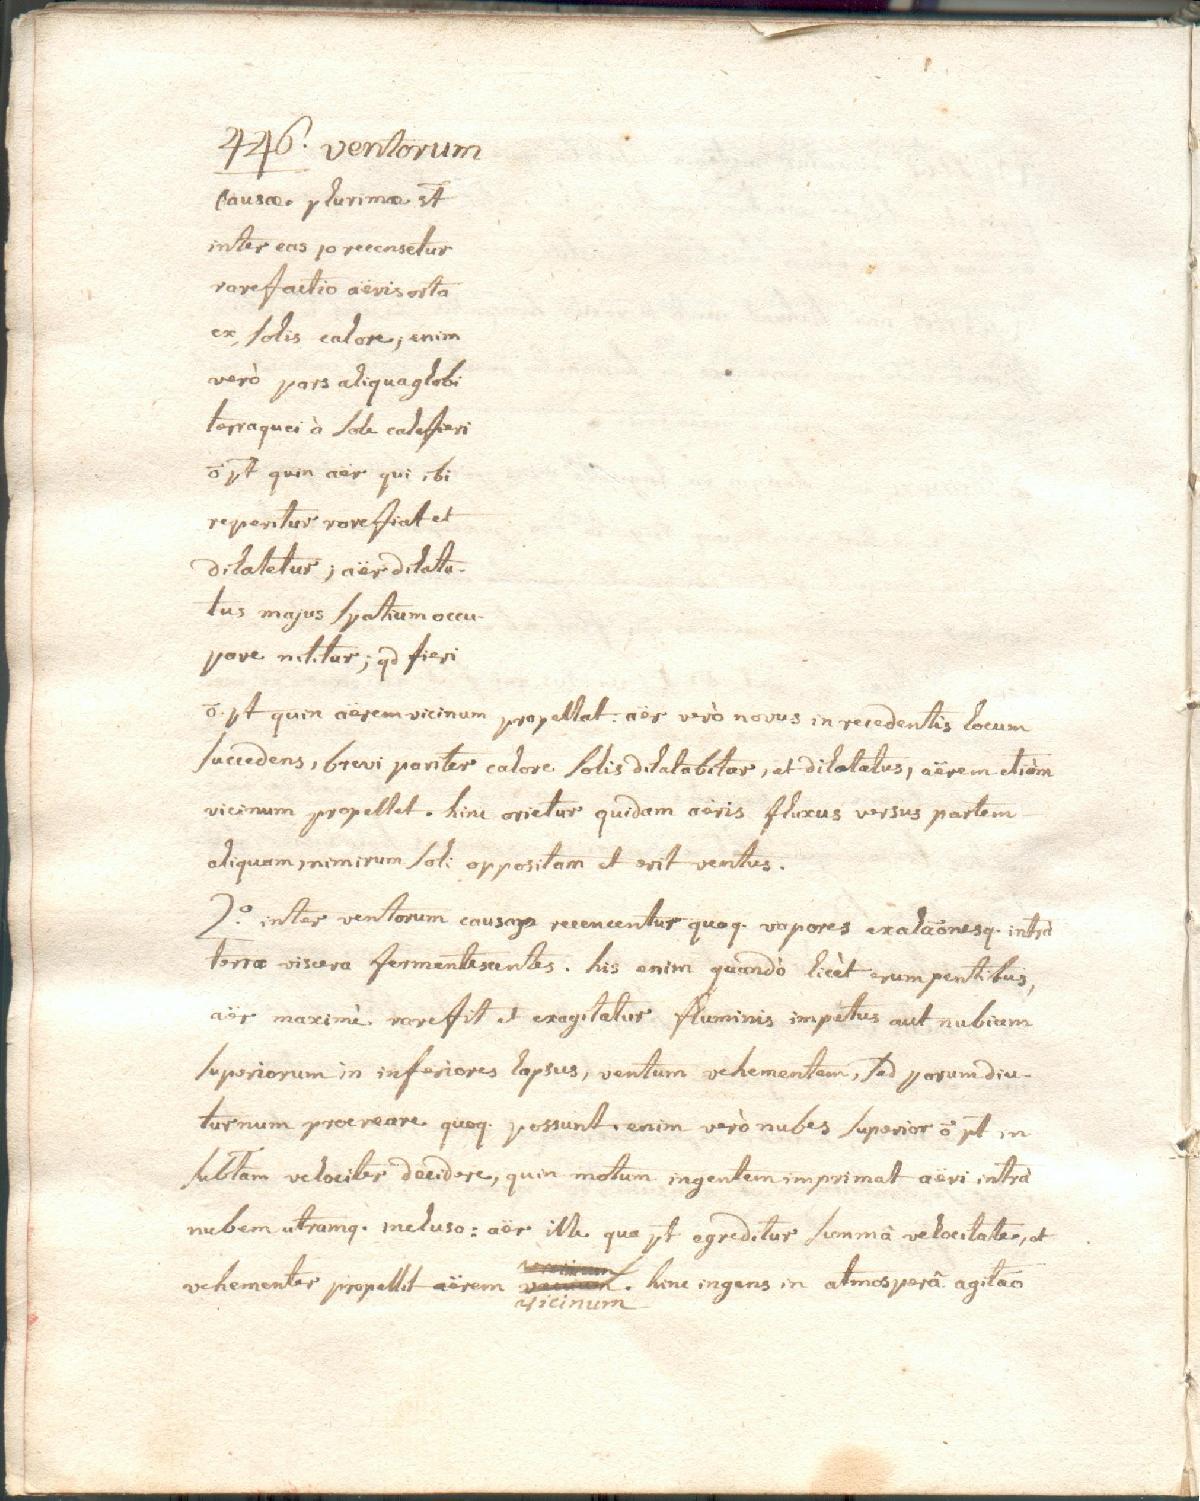 446. ventorum
causæ plurimæ st̄
inter eas 1o recensetur
rarefactio aëris orta
ex solis calore; enim
verò pars aliqua globi
terraquei à sole calefieri
ō pt̄ quin aër qui ibi
reperitur rarefiat et
dilatetur; aër dilata-
tus majus spatium occu-
pare nititur; qd fieri
ō pt̄ quin aërem vicinum propellat: aër verò novus in recedentis locum
succedens, brevi pariter calore solis dilatabitur, et dilatatus, aërem etiàm
vicinum propellet. hinc orietur quidam aëris fluxus versus partem
aliquam, nimirum soli oppositam et erit ventus.
2.o inter ventorum causas recencentur quoq. vapores exalāonesq. intrà
terræ viscera fermentescentes. his enim quandò licèt erumpentibus,
aër maximè rarefit et exagitatur fluminis impetus aut nubium
superiorum in inferiores lapsus, ventum vehementem, sed parum diu-
turnum procreare quoq. possunt. enim verò nubes superior ō pt̄ in
subtam velociter decidere, quin motum ingentem imprimat aëri intrà
nubem utramq. incluso: aër ille qua pt̄ egreditur summâ velocitate, et
vehementer propellit aërem vicinum. hinc ingens in atmosperâ agitāo